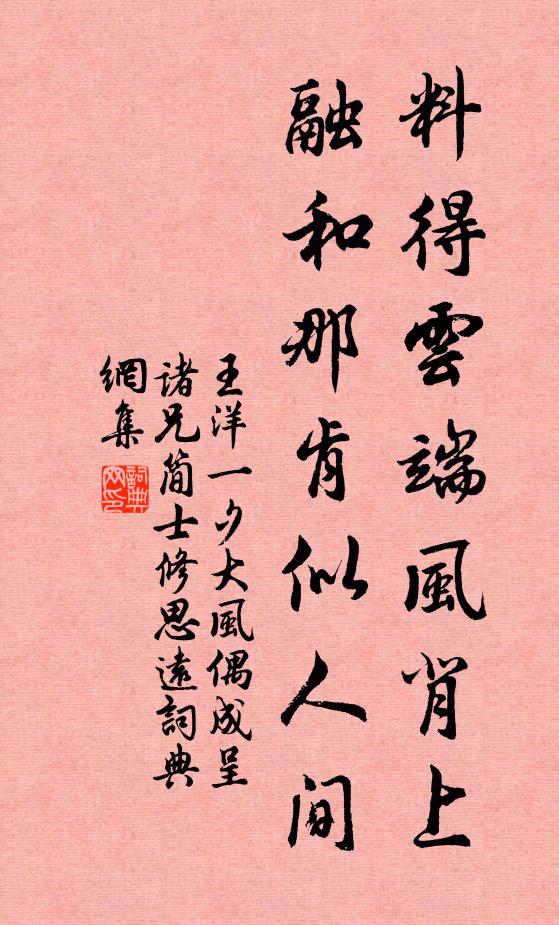 料得雲端風背上
融和那肯似人間
王洋一夕大風偶成呈
諸兄簡士修思遠詞典
網集
詞典網印